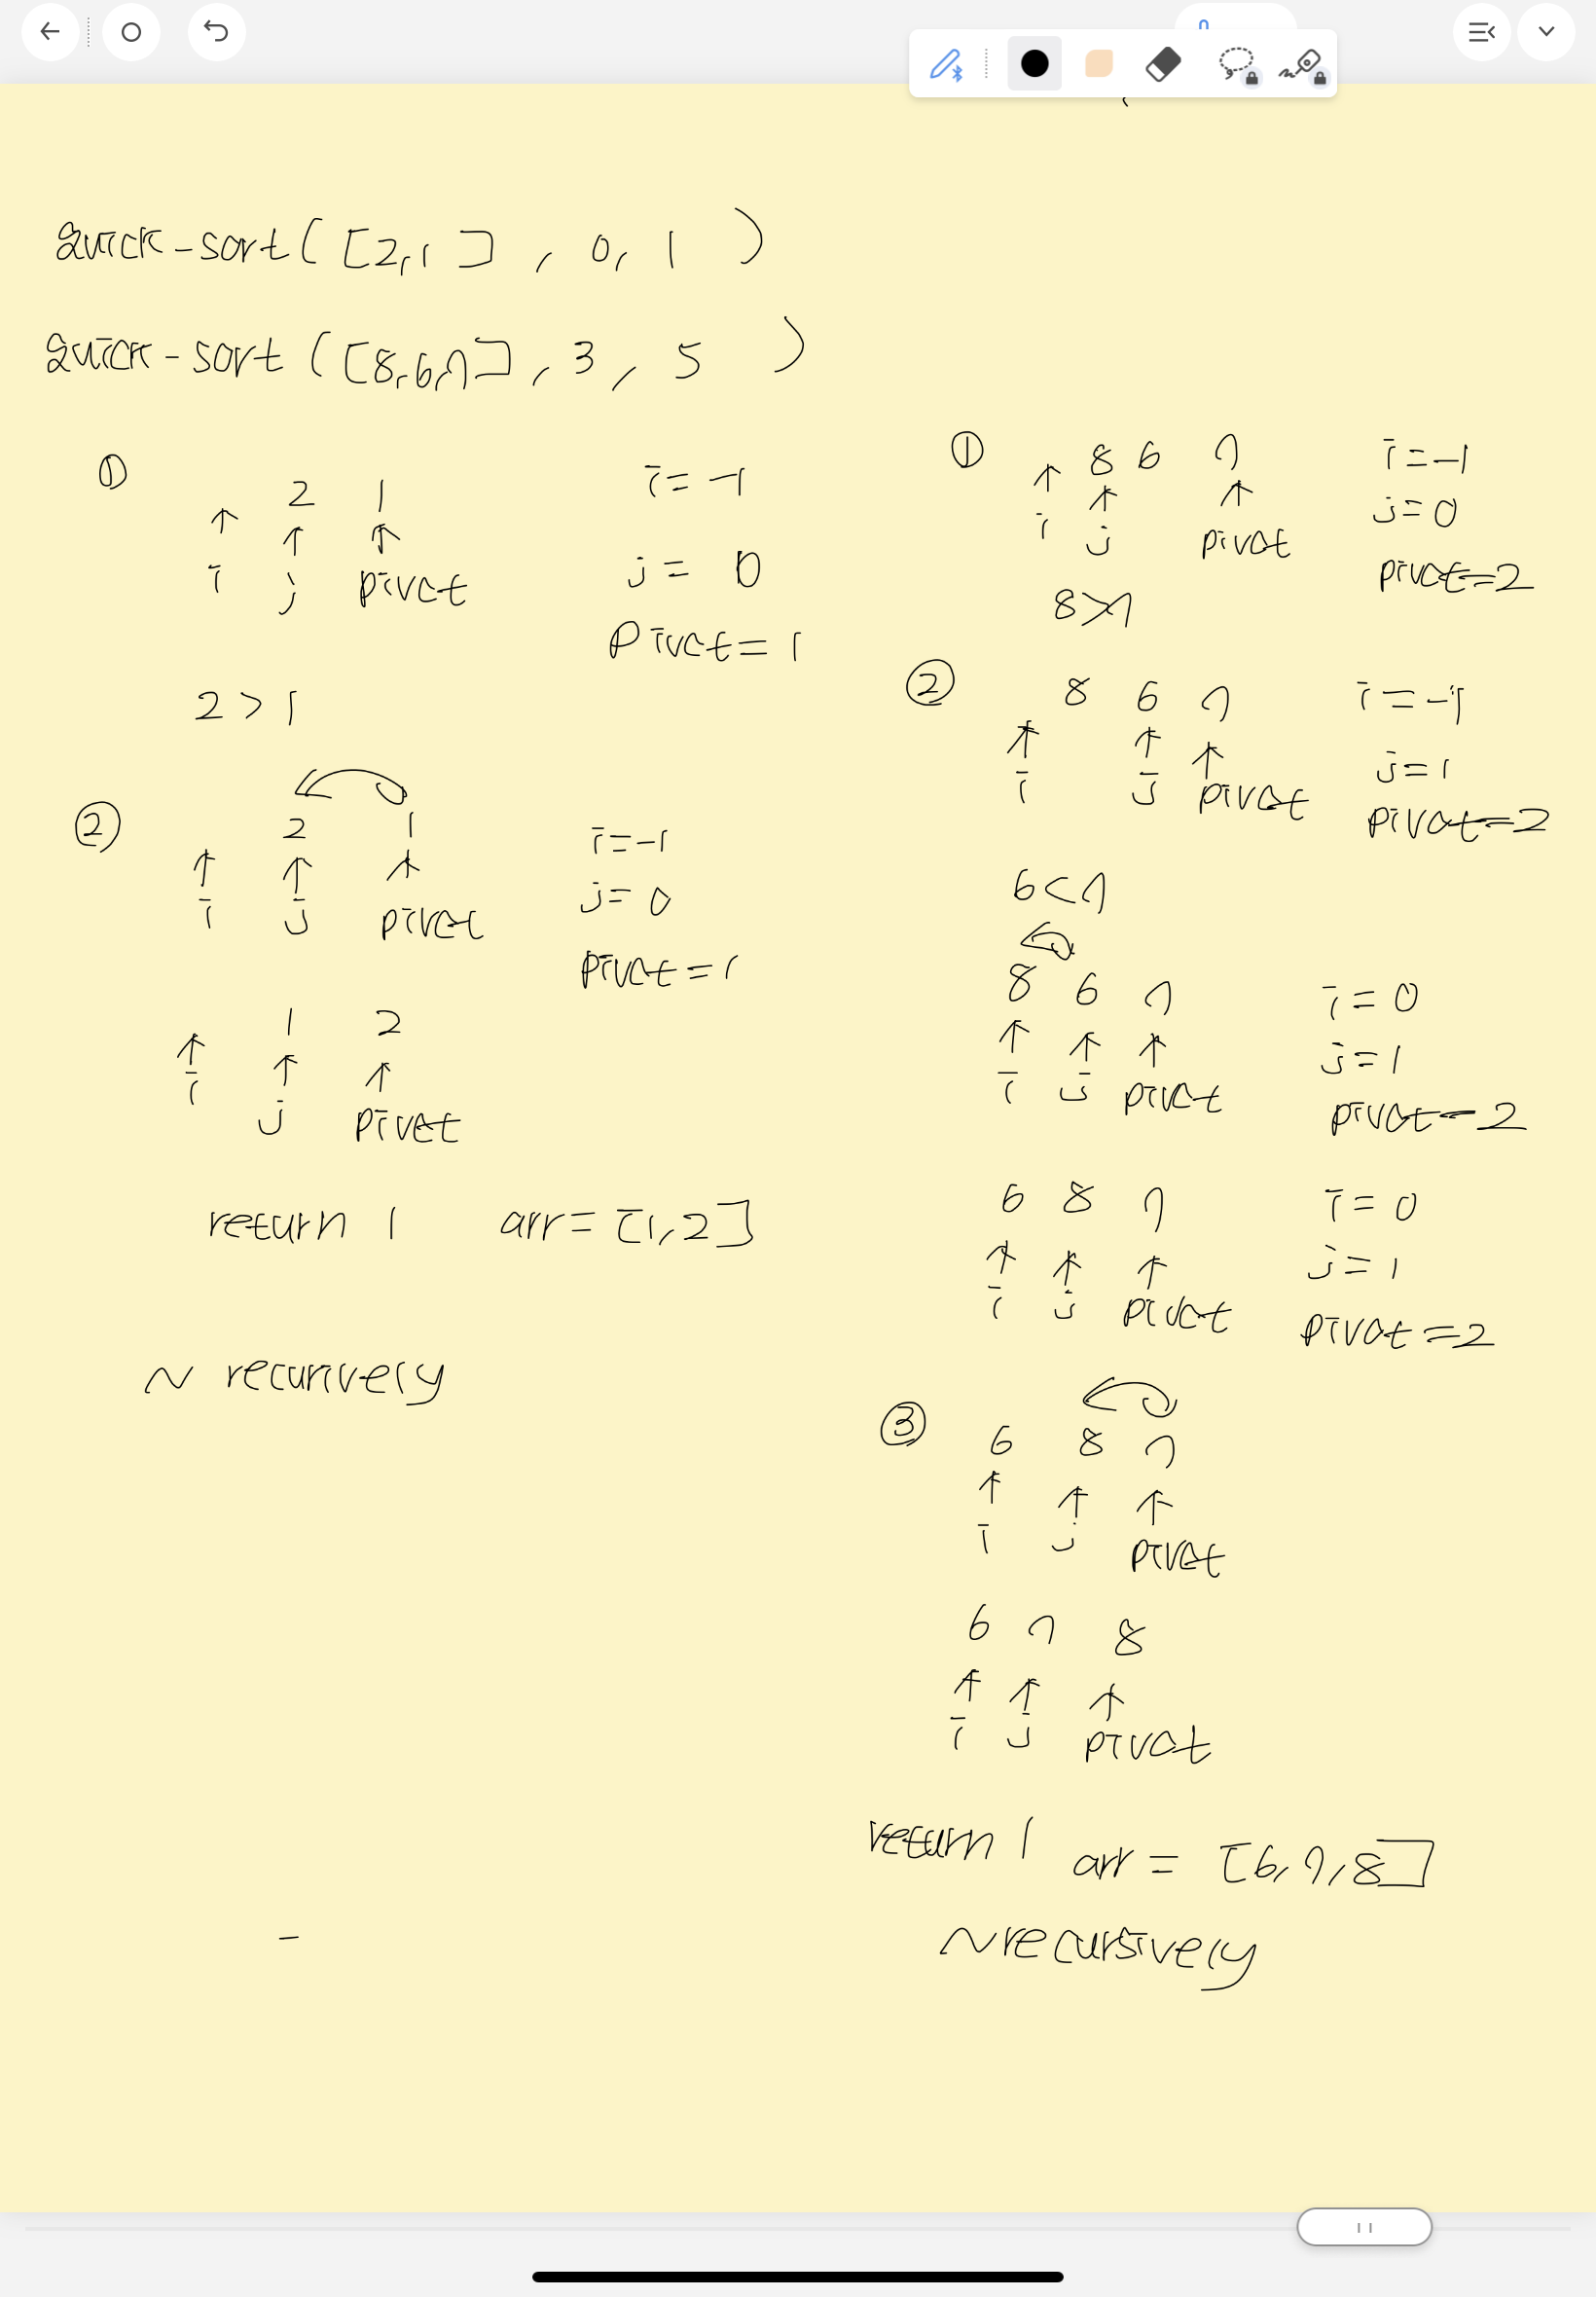 quick-sort([2,1], 0, 1)
quick-sort([8,6,7], 3, 5)
① 2 1 i=-1
i j pivot j=0
pivot=1
2>1
② 2 1 i=-1
i j pivot j=0
pivot=1
1 2
i j pivot
return 1 arr=[1,2]
~ recurively
① 8 6 7 i=-1
i j pivot j=0
pivot=2
8>7
② 8 6 7 i=-1
j=1
i j pivot pivot=2
6<7
8 6 7 i=0
j=1
i j pivot pivot=2
6 8 7 i=0
j=1
i j pivot pivot=2
③ 6 8 7
i j pivot
6 7 8
i j pivot
return 1 arr=[6,7,8]
~recursively